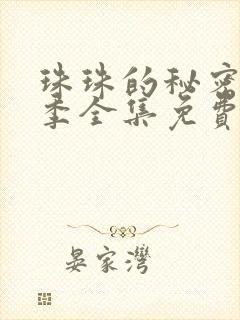 珠珠的秘密
季全集免費
晏家灣